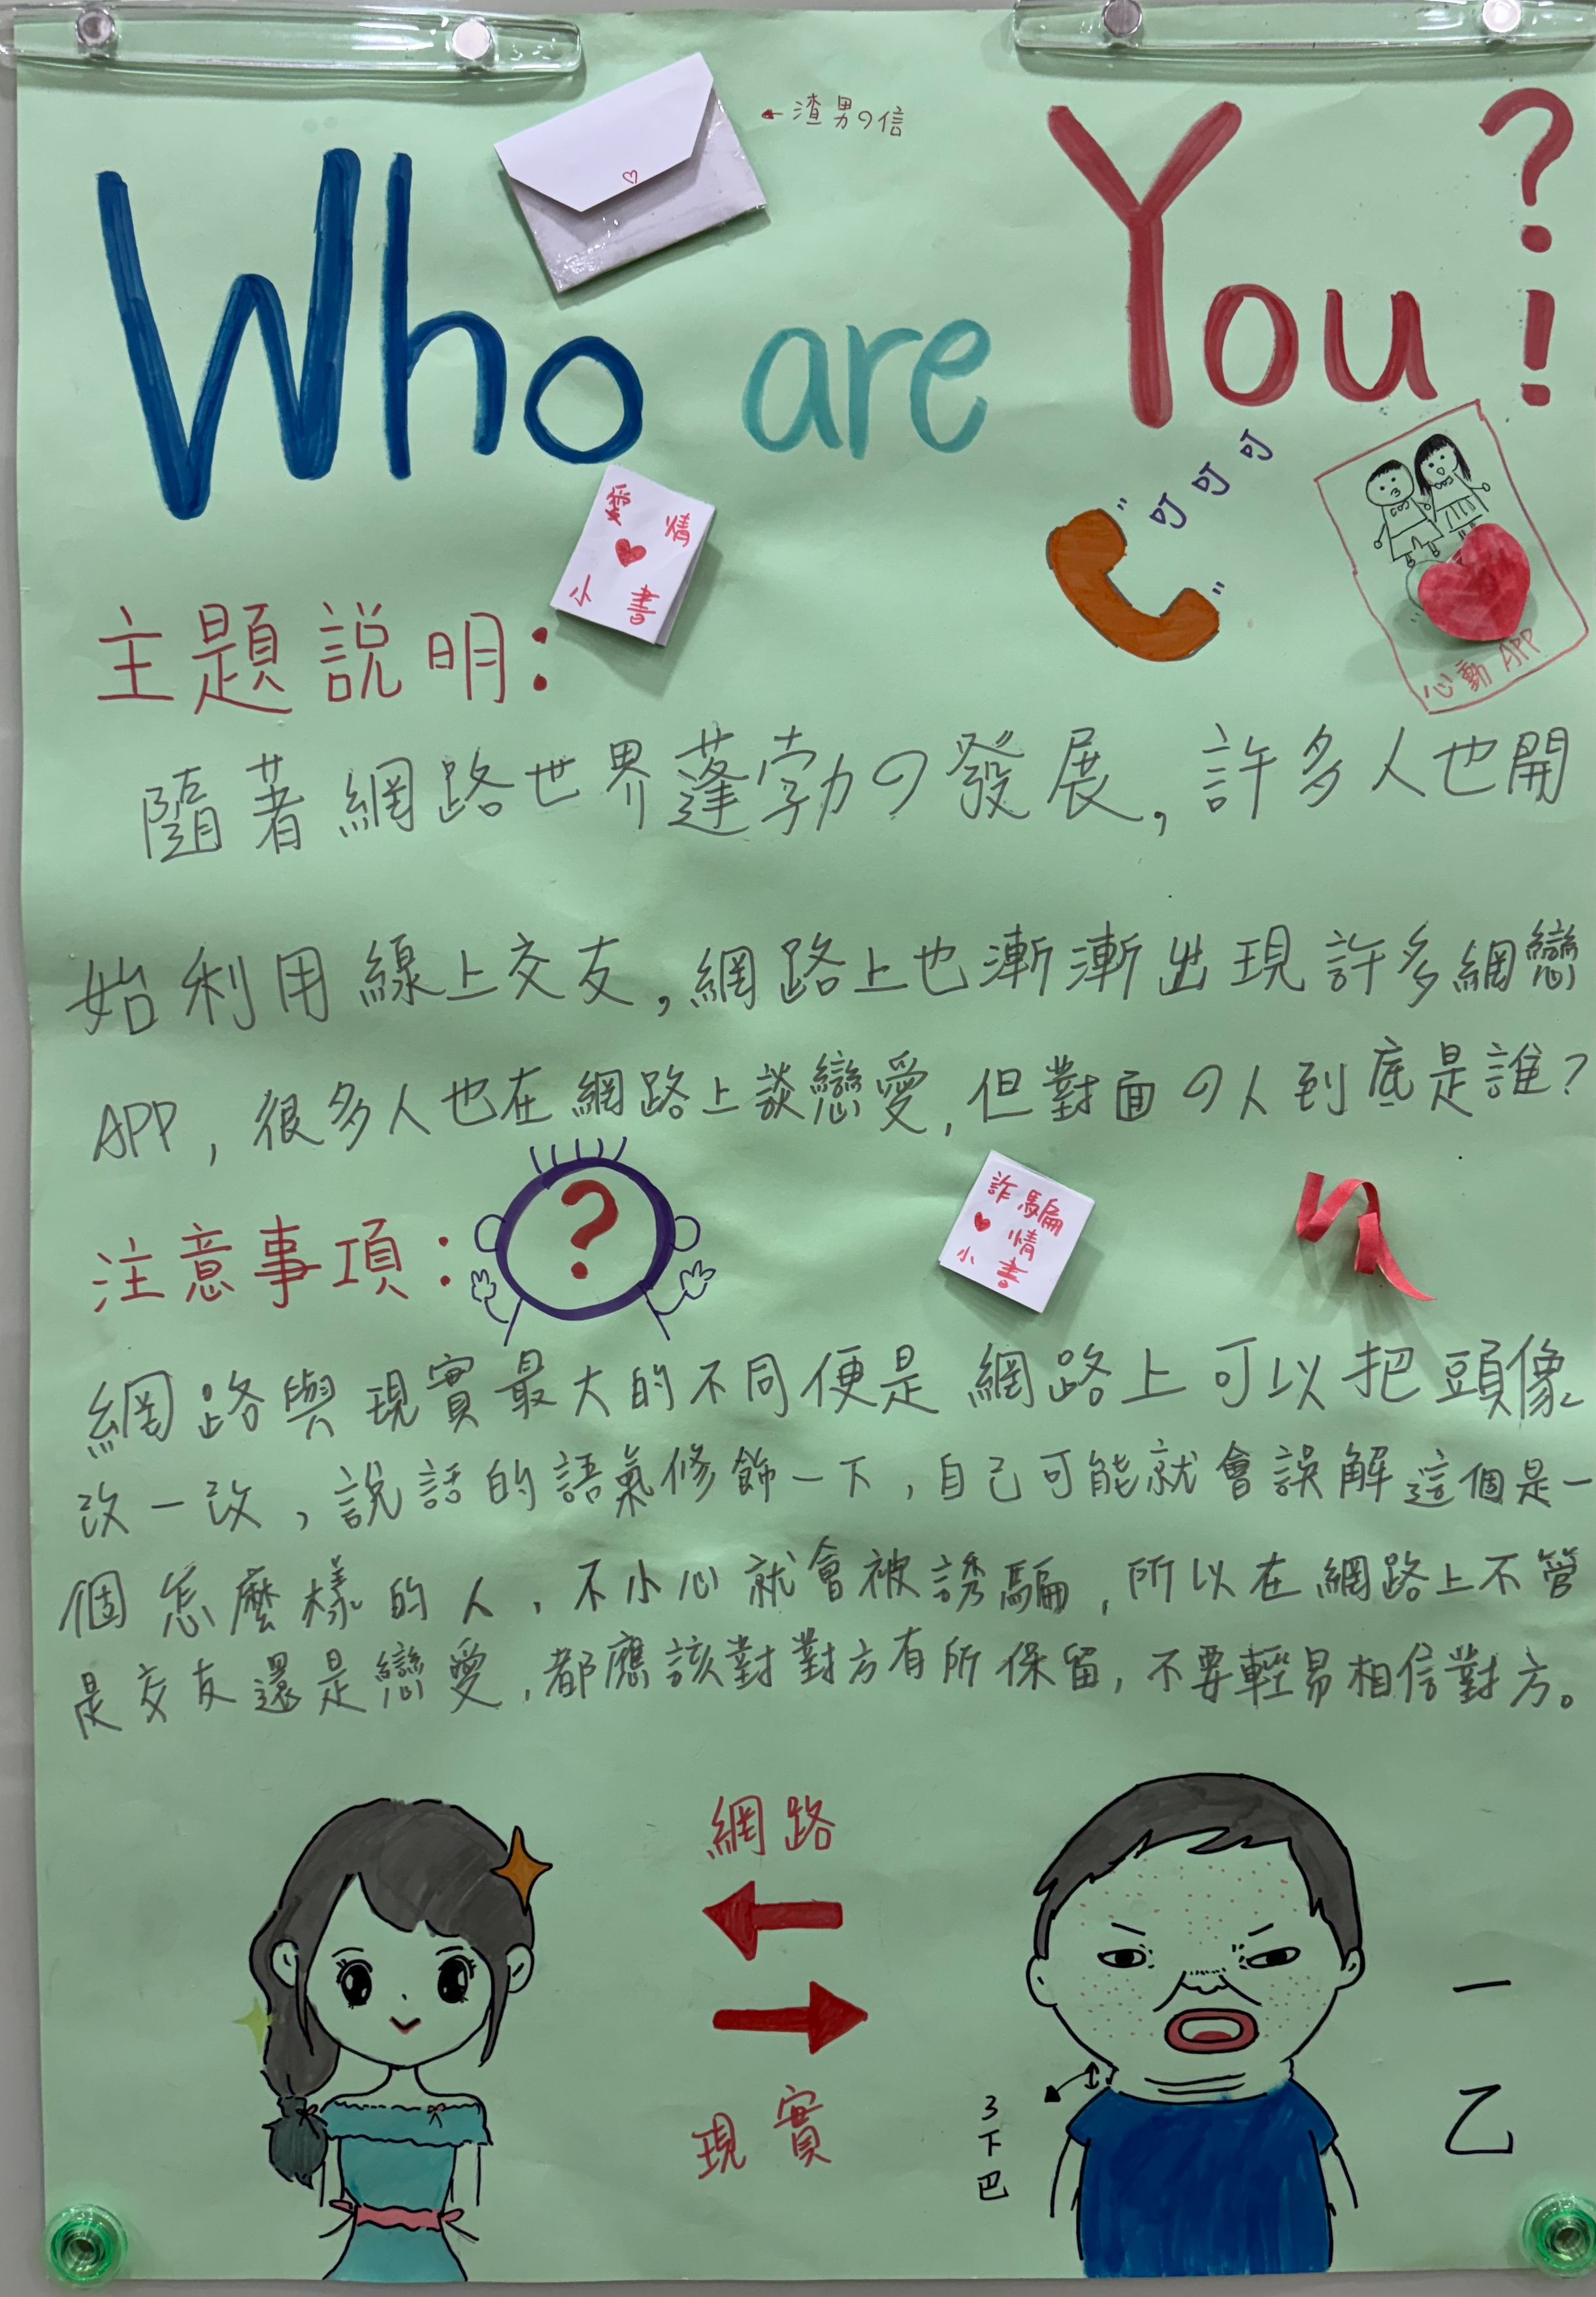 ←渣男の信
Who are You?!
愛情
小書
叮叮叮
心動 APP
主題説明:
隨著網路世界蓬勃の發展,許多人也開
始利用線上交友,網路上也漸漸出現許多網戀
APP,很多人也在網路上談戀愛,但對面の人到底是誰?
注意事項:
?
詐騙
情
小書
網路與現實最大的不同便是網路上可以把頭像
改一改,說話的語氣修飾一下,自己可能就會誤解這個是一
個怎麼樣的人,不小心就會被誘騙,所以在網路上不管
是交友還是戀愛,都應該對對方有所保留,不要輕易相信對方。
網路
現實
3下巴
一
乙